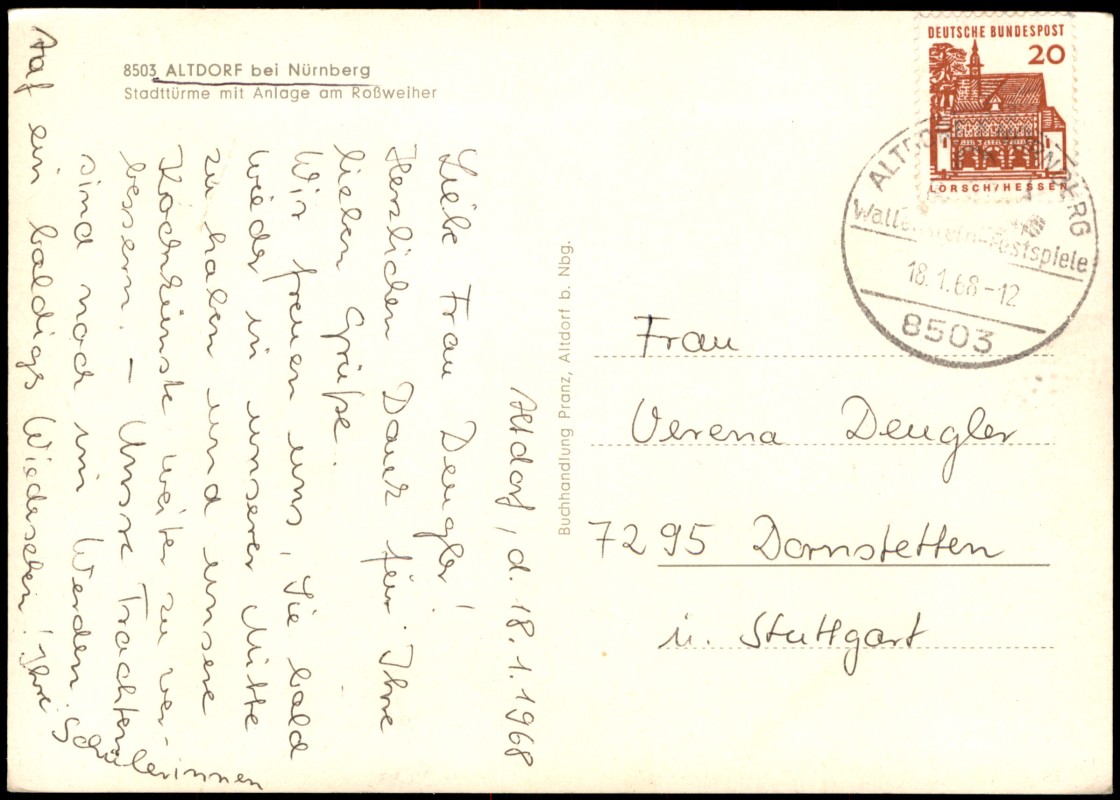 8503 ALTDORF bei Nürnberg
Stadttürme mit Anlage am Roßweiher
Altdorf, d. 18.1.1968
Liebe Frau Deugler!
Herzlichen Dank für Ihre
lieben Grüße.
Wir freuen uns, Sie bald
wieder in unserer Mitte
zu haben und unsere
Kochkünste weiter zu ver-
bessern. – Unsre Trachten
sind noch im Werden.
Auf ein baldigs Wiedersehen! Ihre Schülerinnen
Buchhandlung Pranz, Altdorf b. Nbg.
DEUTSCHE BUNDESPOST
20
LORSCH/HESSEN
Festspiele
18.1.68-12
8503
Frau
Verena Deugler
7295 Dornstetten
ü. Stuttgart